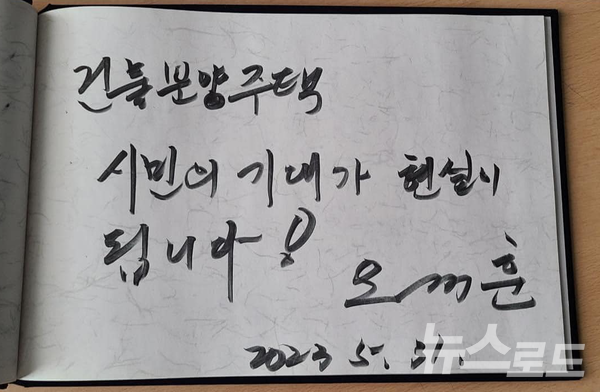 건물분양주택
시민의 기대가 현실이
됩니다!
오세훈
2023 5. 31.
뉴스로드